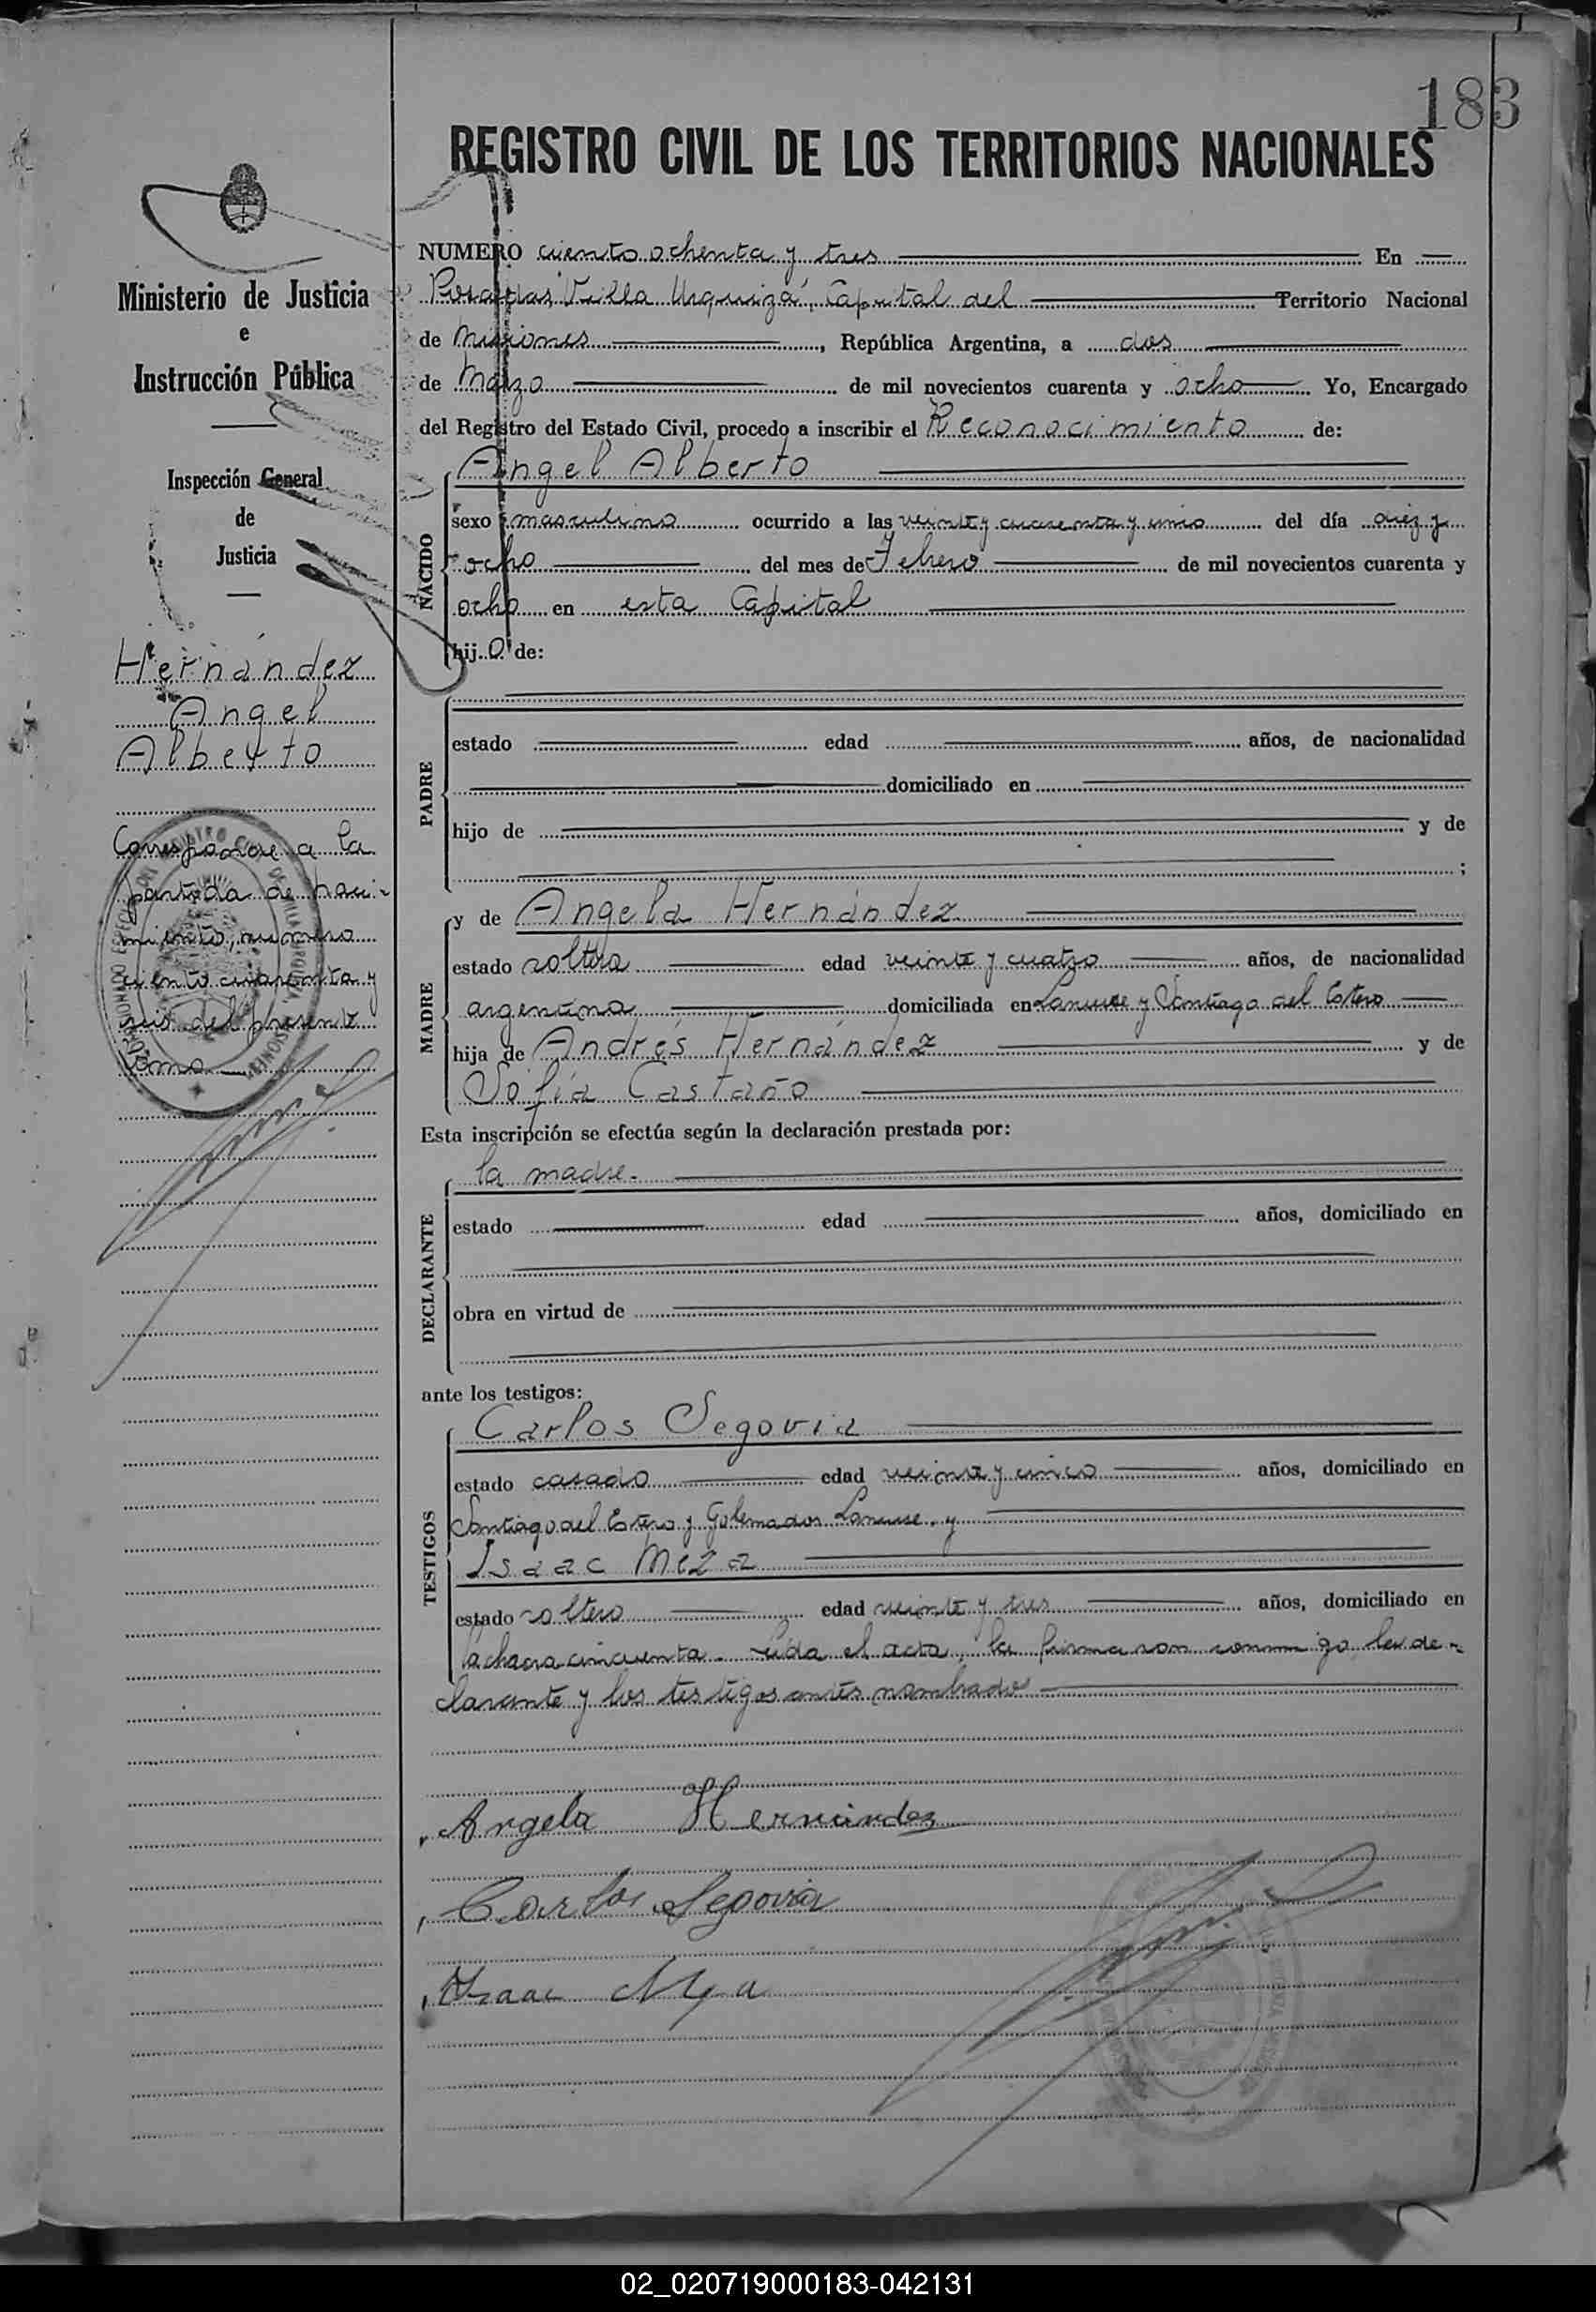 183
REGISTRO CIVIL DE LOS TERRITORIOS NACIONALES
Ministerio de Justicia
e
Instrucción Pública
Inspección General
de
Justicia
Hernández
Angel
Alberto
Corresponde a la
partida de naci-
miento, número
ciento cuarenta y
seis del presente
tomo
NUMERO ciento ochenta y tres En
Posadas, Villa Urquiza, Capital del Territorio Nacional
de Misiones, República Argentina, a dos
de Marzo de mil novecientos cuarenta y ocho Yo, Encargado
del Registro del Estado Civil, procedo a inscribir el Reconocimiento de:
NACIDO
Angel Alberto
sexo masculino ocurrido a las veinte y cuarenta y cinco del día diez y
ocho del mes de Febrero de mil novecientos cuarenta y
ocho en esta Capital
hijo de:
PADRE
estado edad años, de nacionalidad
domiciliado en
hijo de y de
;
MADRE
y de Angela Hernández
estado soltera edad veinte y cuatro años, de nacionalidad
argentina domiciliada en Lanusse y Santiago del Estero
hija de Andrés Hernández y de
Sofía Castaño
Esta inscripción se efectúa según la declaración prestada por:
DECLARANTE
la madre.
estado edad años, domiciliado en
obra en virtud de
ante los testigos:
TESTIGOS
Carlos Segovia
estado casado edad veinte y cinco años, domiciliado en
Santiago del Estero y Gobernador Lanusse. y
Isaac Meza
estado soltero edad veinte y tres años, domiciliado en
la chacra cincuenta. Leida el acta, la firmaron conmigo la de-
clarante y los testigos antes nombrados
Angela Hernández
Carlos Segovia
Isaac Meza
02_020719000183-042131